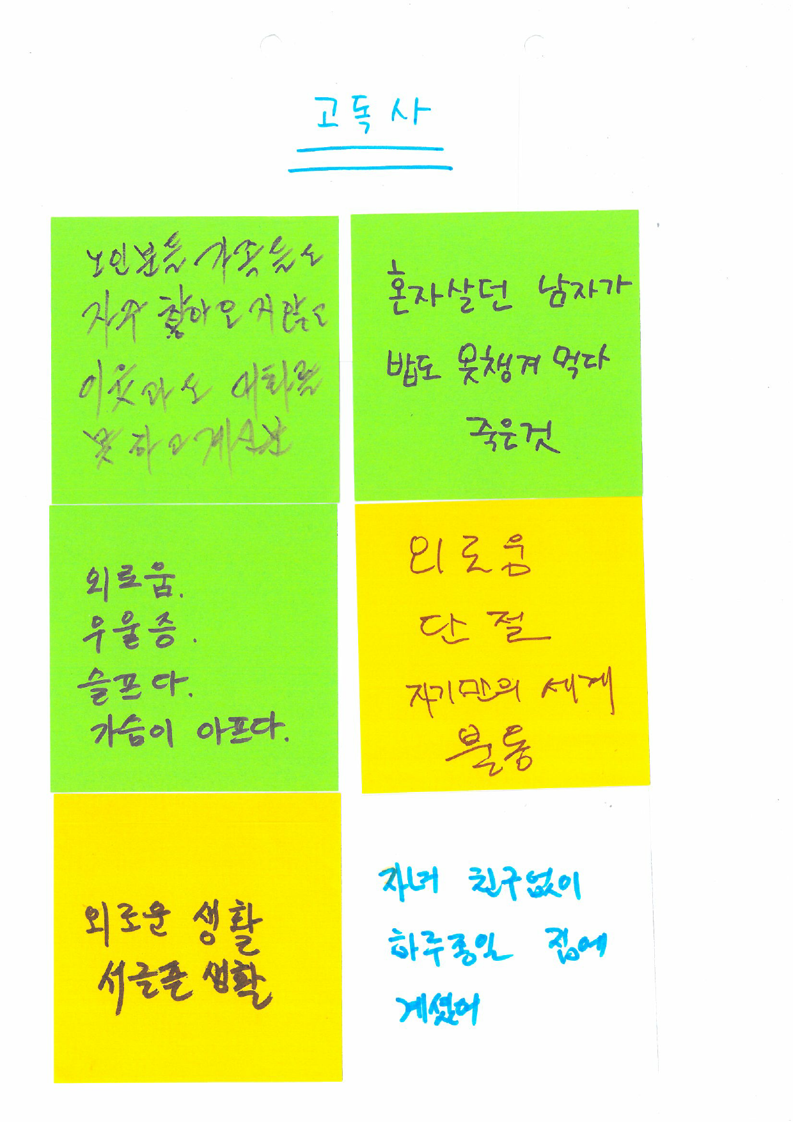 고독사
노인분들 가족들도
자주 찾아오지않고
이웃과도 대화를
못하고계신분
혼자살던 남자가
밥도 못챙겨 먹다
죽은것
외로움.
우울증.
슬프다.
가슴이 아프다.
외로움
단절
자기만의 세계
불통
외로운 생활
서글픈 생활
자녀 친구없이
하루종일 집에
계셨어